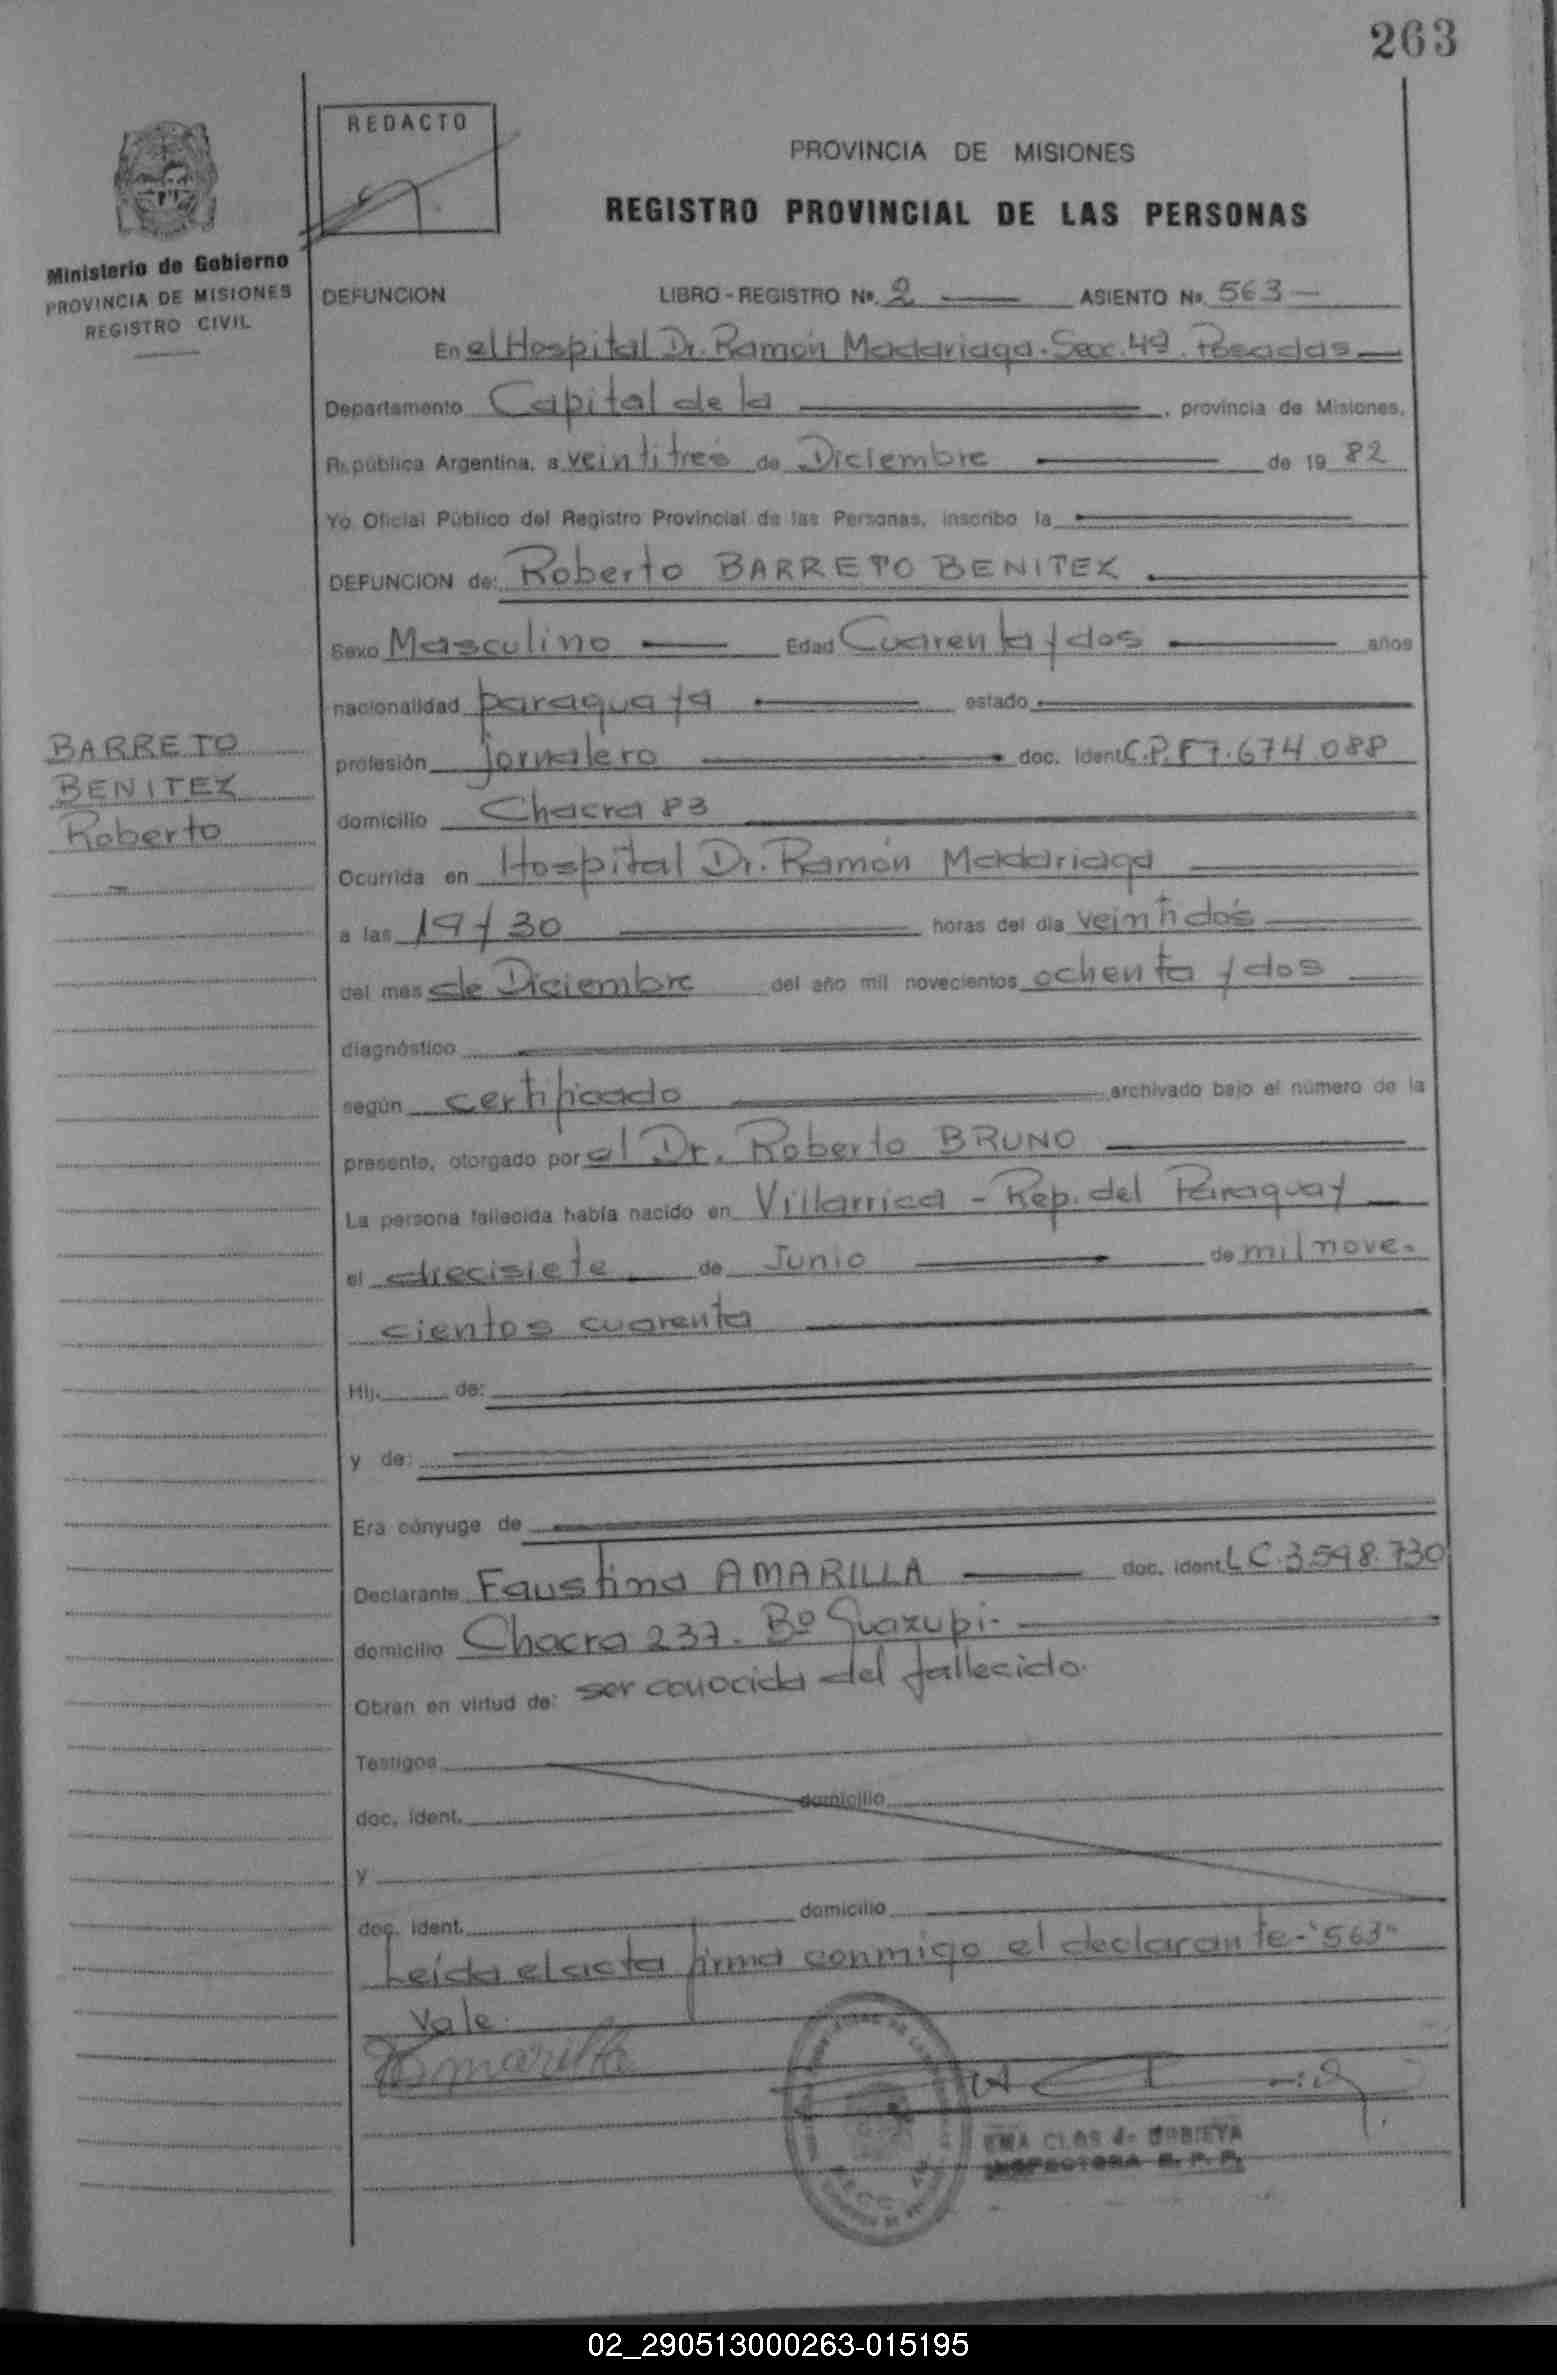 263
REDACTO
PROVINCIA DE MISIONES
REGISTRO PROVINCIAL DE LAS PERSONAS
Ministerio de Gobierno
PROVINCIA DE MISIONES
REGISTRO CIVIL
DEFUNCION LIBRO-REGISTRO Nº. 2 ASIENTO Nº. 563
En el Hospital Dr. Ramón Madariaga. Secc. 4ª. Posadas
Departamento Capital de la , provincia de Misiones,
República Argentina, a veintitres de Diciembre de 19 82
Yo Oficial Público del Registro Provincial de las Personas, inscribo la
DEFUNCION de: Roberto BARRETO BENITEZ
Sexo Masculino Edad Cuarenta y dos años
nacionalidad paraguaya estado
BARRETO
BENITEZ
Roberto
profesión jornalero doc. Ident C.P.F 7.674.088
domicilio Chacra 83
Ocurrida en Hospital Dr. Ramón Madariaga
a las 19 y 30 horas del día veintidós
del mes de Diciembre del año mil novecientos ochenta y dos
diagnóstico
según certificado archivado bajo el número de la
presente, otorgado por el Dr. Roberto BRUNO
La persona fallecida había nacido en Villarrica - Rep. del Paraguay
el diecisiete de Junio de mil nove-
cientos cuarenta
Hij. de:
y de:
Era cónyuge de
Declarante Faustina AMARILLA doc. ident. LC. 3.598.730
domicilio Chacra 237. Bº Guazupi-
Obran en virtud de: ser conocida del fallecido.
Testigos
doc. ident. domicilio
y
doc. ident. domicilio
Leída el acta firma conmigo el declarante-"563"
Vale.
Amarilla
INSPECTORA R. P. P.
02_290513000263-015195